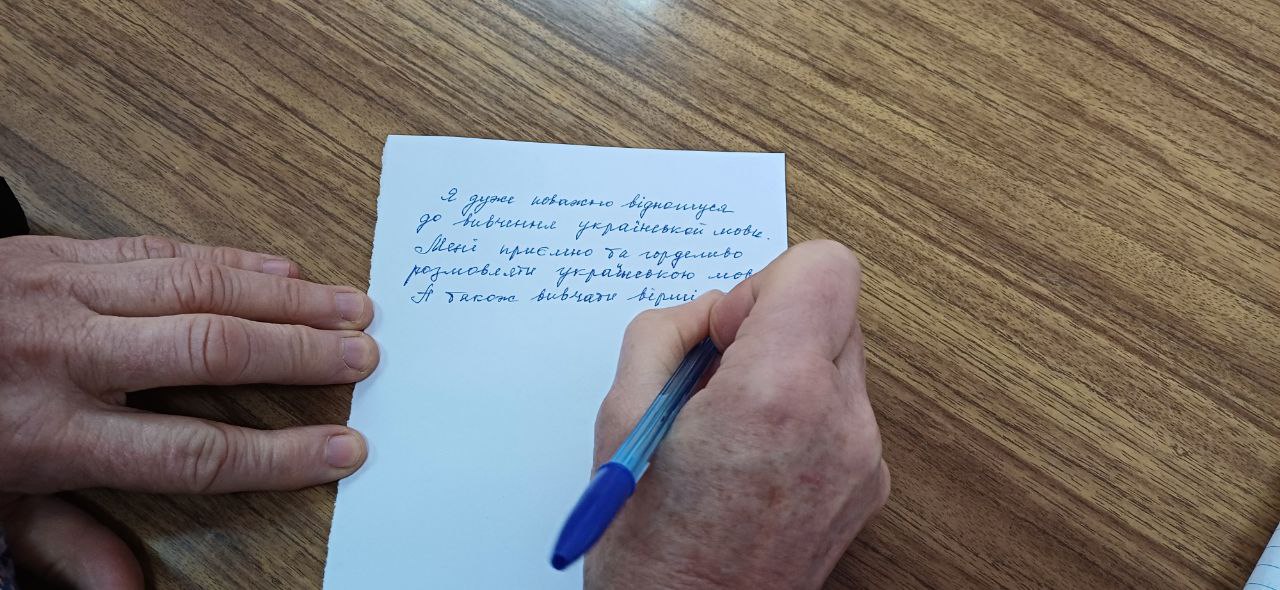 Я дуже поважно відношуся
до вивчення української мови.
Мені приємно та горделиво
розмовляти українською мов
А також вивчати вірші